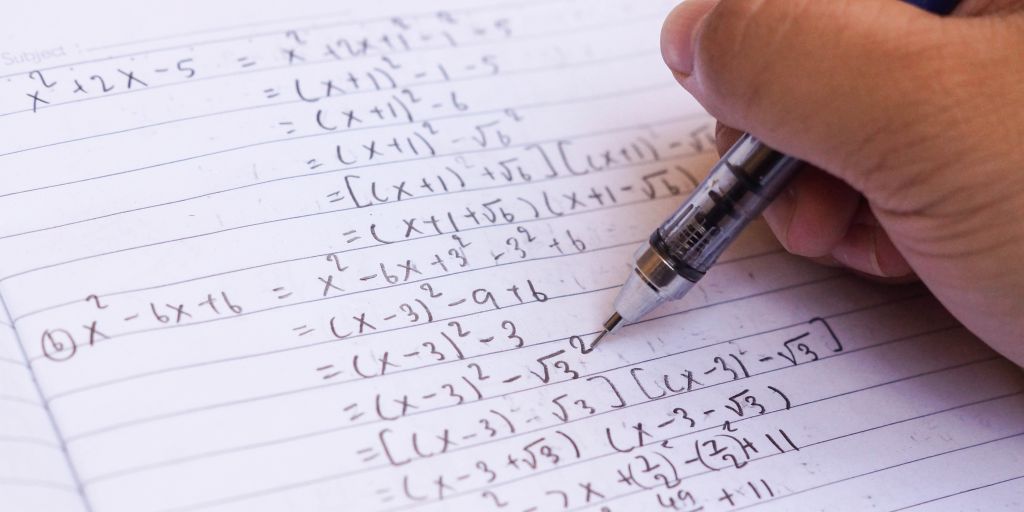 Subject :
x² + 2x - 5 = x² + 2x + 1² - 1² - 5
= (x+1)² - 1 - 5
= (x+1)² - 6
= (x+1)² - √6²
= [(x+1)² + √6] [(x+1) - √6
= (x+1+√6) (x+1-√6)
(b) x² - 6x + 6 = x² - 6x + 3² - 3² + 6
= (x-3)² - 9 + 6
= (x-3)² - 3
= (x-3)² - √3²
= [(x-3) - √3] [(x-3) - √3]
= (x-3+√3) (x-3-√3)
² - 7x + (7/2)² - (7/2)² + 11
49 + 11